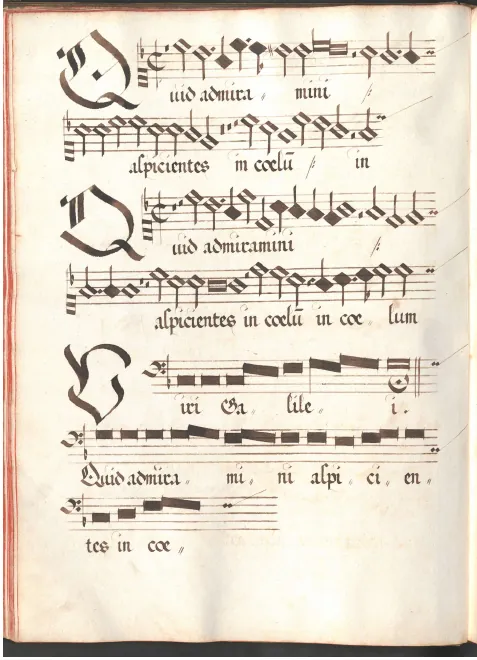 Quid admira „ mini ∕:
aspicientes in coelū ∕: in
Quid admiramini ∕:
aspicientes in coelū in coe „ lum
Viri Ga „ lile „ i.
Quid admira „ mi „ ni aspi „ ci „ en „
tes in coe „